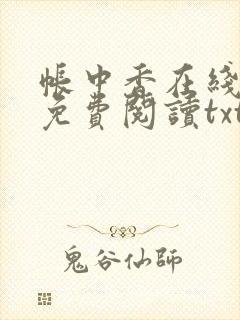 帳中香在綫
免費閱讀txt
鬼谷仙師